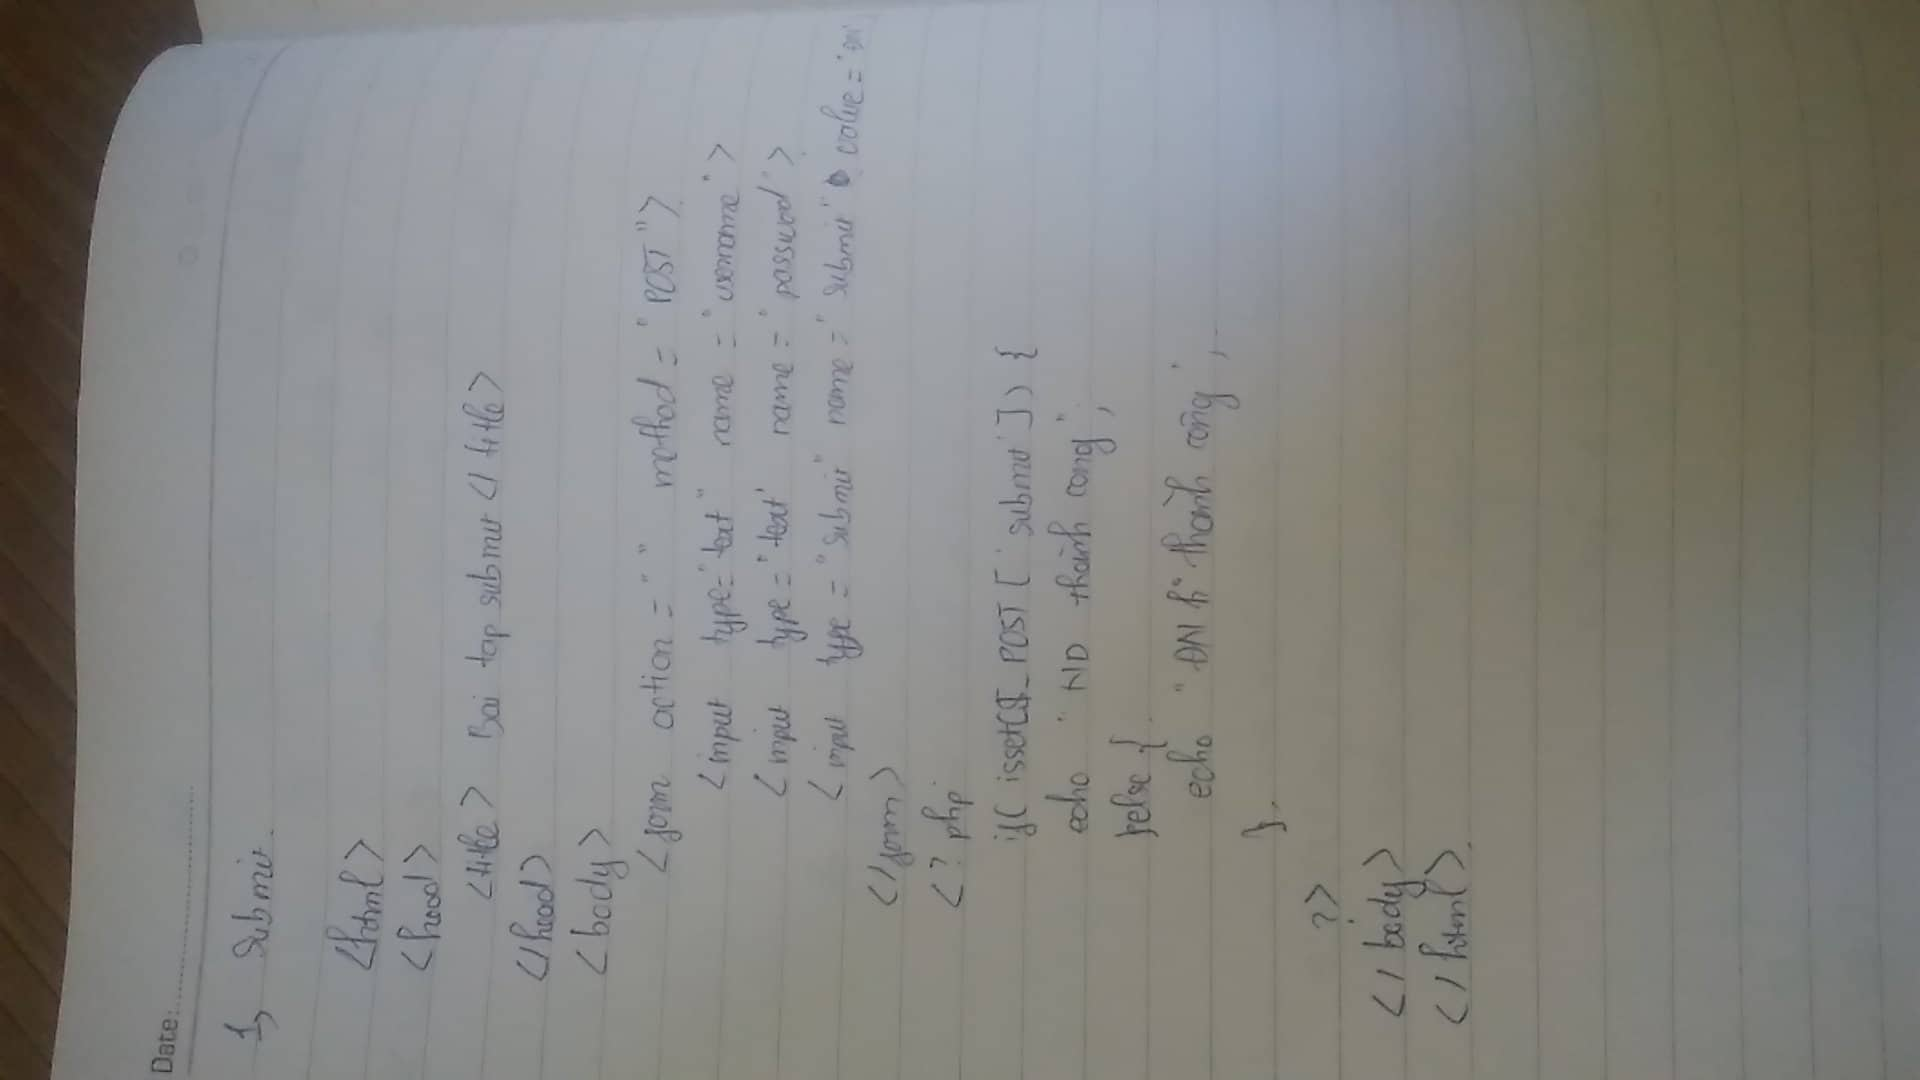 Date:
1, Submit.
<html>
<head>
<title> Bai tap submit </title>
</head>
<body>
<form action = " " method = "POST">
<input type="text" name = "username">
<input type = "text" name = "password">
<input type = "submit" name = "submit" value = "ĐN
</form>
<? php
if( isset($_POST['submit']) {
echo "ND thành công";
}else {
echo "ĐN k° thành công";
}
?>
</body>
</html>